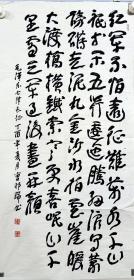 紅軍不怕遠征難萬水千山
只等闲五岭逶迤腾细浪乌蒙
磅礴走泥丸金沙水拍云崖暖
大渡桥横铁索寒更喜岷山千
里雪三军过后尽开颜
毛泽东七律长征丁酉年夏月书